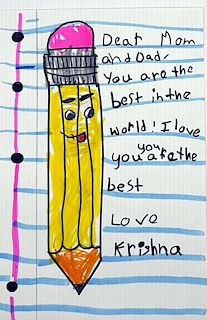 Dear Mom
and Dad,
You are the
best in the
world! I love
you you are the
best
Love
Krishna